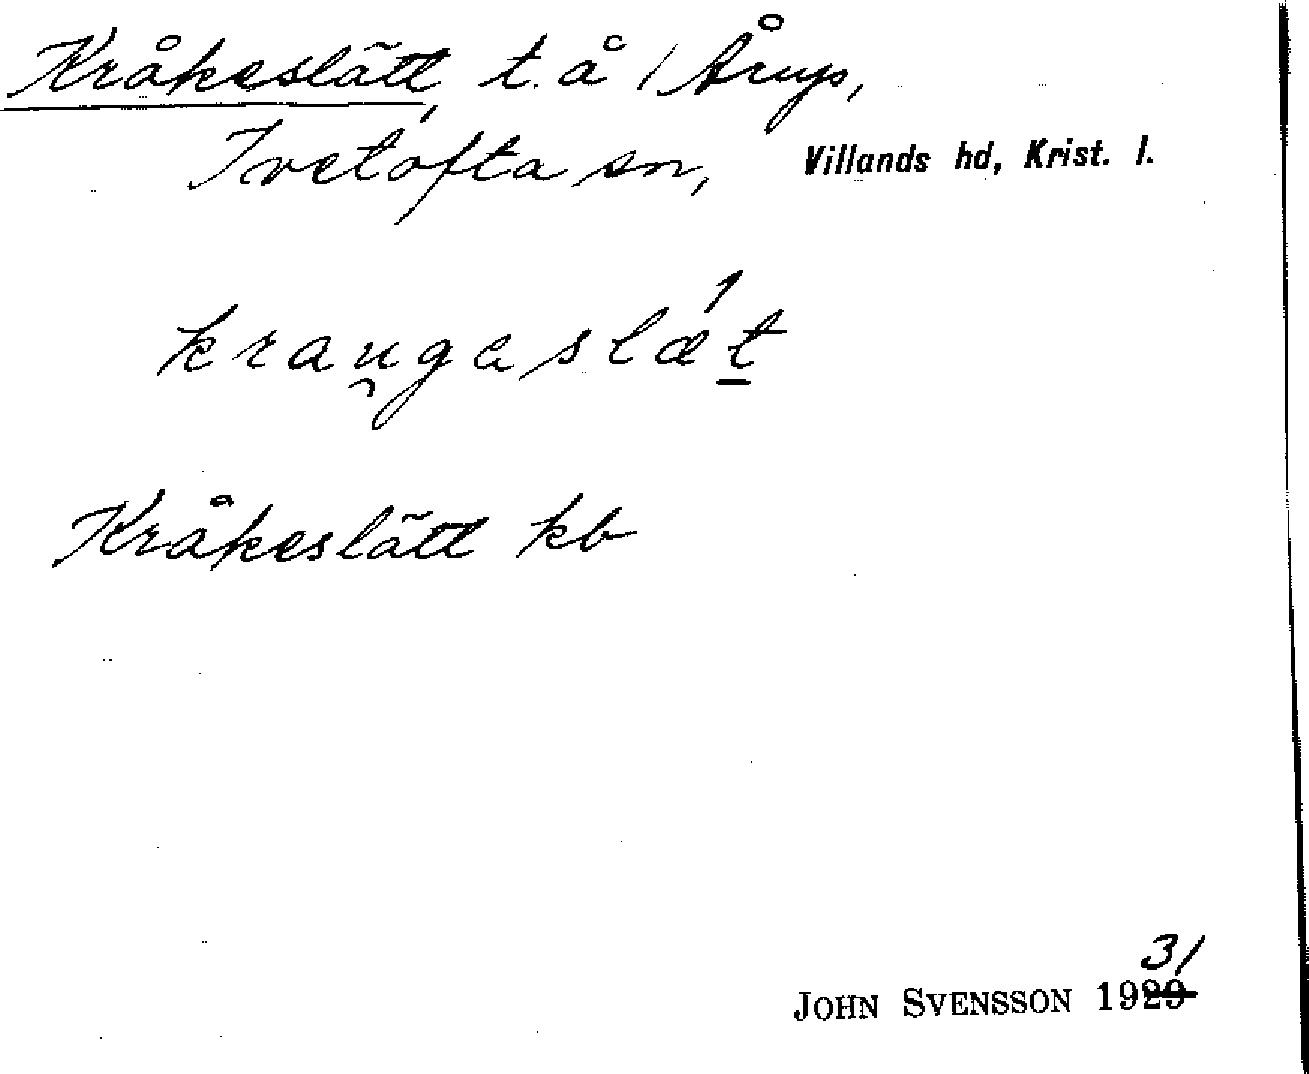 Kråkeslätt, t. å 1 Årup,
Ivetofta sn, Villands hd, Krist. l.
krau̯gaslǽt̲
Kråkeslätt kb
31
JOHN SVENSSON 1929